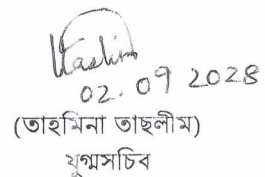 02.09 2028
(তাহমিনা তাছলীম)
যুগ্মসচিব